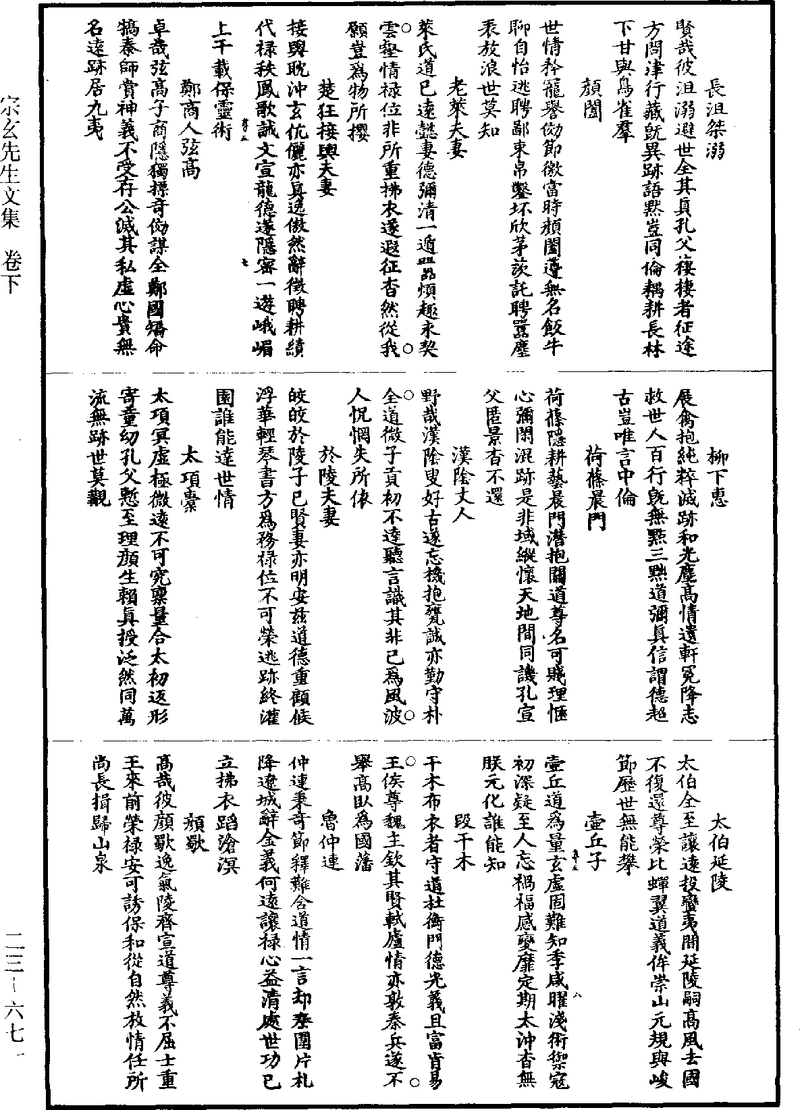 長沮桀溺
賢哉彼沮溺避世全其真孔父棲棲者征途
方問津行藏既異跡語默豈同倫耦耕長林
下甘與鳥雀羣
顔闔
世情矜寵譽効節徼當時顔闔遵無名飯牛
聊自怡逃聘鄙束帛鑿坏欣茅茨託聘囂塵
表放浪世莫知
老萊夫妻
萊氏道已遠懿妻德彌清一遁囂煩趣永契
雲壑情祿位非所重拂衣遂遐征杳然從我
願豈為物所攖
楚狂接輿夫妻
接輿耽沖玄伉儷亦真逸傲然辭徵聘耕績
代祿秩鳳歌誡文宣龍德遂隱密一遊峨嵋
上千載保靈術
鄭商人弦高
卓哉弦高子商隱獨摽奇効謀全鄭國矯命
犒秦師賞神義不受存公滅其私虛心貴無
名遠跡居九夷
柳下惠
展禽抱純粹滅跡和光塵高情遺軒冕降志
救世人百行既無點三黜道彌真信謂德超
古豈唯言中倫
荷蓧晨門
荷蓧隱耕藝晨門潛抱關道尊名可賤理愜
心彌閑混跡是非域縱懷天地間同譏孔宣
父匿景杳不還
漢陰丈人
野哉漢陰叟好古遂忘機抱甕誠亦勤守朴
全道微子貢初不達聽言識其非已為風波
人怳惘失所依
於陵夫妻
皎皎於陵子已賢妻亦明安茲道德重顧候
浮華輕琴書方為務祿位不可榮逃跡終灌
園誰能達世情
太項橐
太項冥虛極微遠不可究稟量合太初返形
寄童幼孔父慙至理顔生賴真授泛然同萬
流無跡世莫覯
太伯延陵
太伯全至讓遠投蠻夷間延陵嗣高風去國
不復還尊榮比蟬翼道義侔崇山元規與峻
節歷世無能攀
壺丘子
壺丘道為量玄虛固難知季咸曜淺術禦寇
初深疑至人忘禍福感變靡定期太沖杳無
朕元化誰能知
段干木
干木布衣者守道杜衡門德光義且富肯易
王侯尊魏主欽其賢軾廬情亦敦秦兵遂不
舉高臥為國藩
魯仲連
仲連秉奇節釋難含道情一言却秦圍片札
降遼城辭金義何遠讓祿心益清處世功已
立拂衣蹈滄溟
顔歜
高哉彼顔歜逸氣陵齊宣道尊義不屈士重
王來前榮祿安可誘保和從自然放情任所
尚長揖歸山泉
宗玄先生文集 卷下
二三-六七一